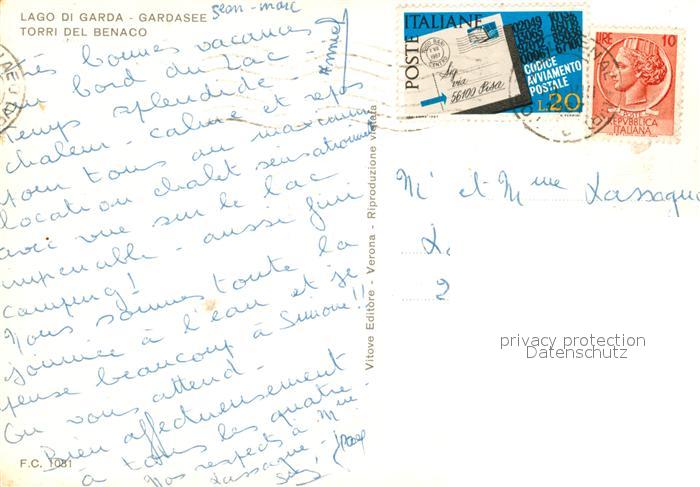 LAGO DI GARDA - GARDASEE
TORRI DEL BENACO
Jean-Marc
Très bonnes vacances
au bord du Lac -
Temps splendide -
chaleur - calme et repos
pour tous au maximum
location chalet sensationnel
avec vue sur le lac
imprenable - aussi fini
camping!
Nous sommes toute la
journée à l'eau et je
pense beaucoup à Simone!!
On vous attend -
Bien affectueusement
à tous les quatre -
Nos respects à Mme
Lassague -
F.C. 1031
Vitove Editore - Verona - Riproduzione vietata
POSTE ITALIANE
56100 Pisa
CODICE
AVVIAMENTO
POSTALE
L.20
LIRE 10
POSTE
REPVBBLICA
ITALIANA
Mr et Mme Lassague
L.
2
privacy protection
Datenschutz